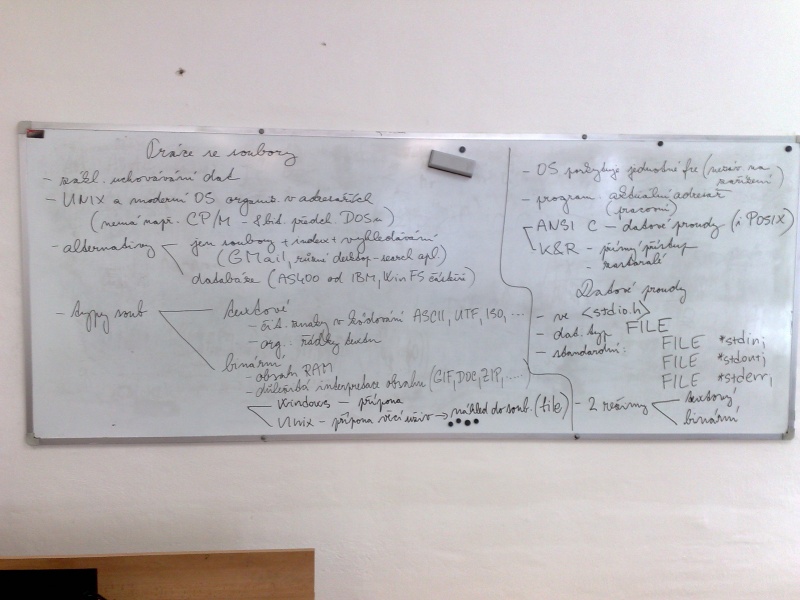 Práce se soubory
- zákl. uchovávání dat
- UNIX a moderní OS organiz. v adresářích
(nemá např. CP/M - 8bit. předch. DOSu)
- alternativy
jen soubory + index + vyhledávání
(GMail, různé desktop-search apl.)
databáze (AS400 od IBM, WinFS částečně)
- typy soub
textové
- čit. znaky v kódování ASCII, UTF, ISO, ...
- org. řádky textu
binární
- obsah RAM
- důležitá interpretace obsahu (GIF, DOC, ZIP, ....)
Windows - přípona
Unix - přípona věcí uživ → náhled do soub. (file)
- OS poskytuje jednotné fce (nezáv. na
zařízení)
- program. aktuální adresář
(pracovní)
ANSI C - datové proudy (i POSIX)
K&R - přímý přístup
- zastaralé
Datové proudy
- ve <stdio.h>
- dat. typ FILE
- standardní:
FILE *stdin;
FILE *stdout;
FILE *stderr;
- 2 režimy
textový
binární